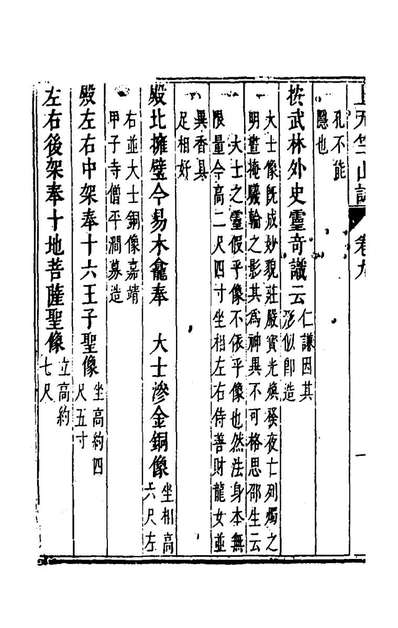 上天竺山誌　卷九
孔不能
隱也
按武林外史靈奇識云仁謙因其
形似即造
大士像既成妙貌莊嚴寳光煥發夜亡列燭之
明晝掩曦輪之影其爲神異不可格思邵生云
大士之靈假乎像不依乎像也然法身本無
限量今高二尺四寸坐相左右侍善財龍女並
異香具
足相好
殿北擁壁今易木龕奉　大士滲金銅像坐相高
六尺左
右並大士銅像嘉靖
甲子寺僧平澗募造
殿左右中架奉十六王子聖像坐高約四
尺五寸
左右後架奉十地菩薩聖像立高約
七尺